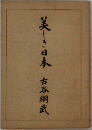 美しき日本
古谷綱武